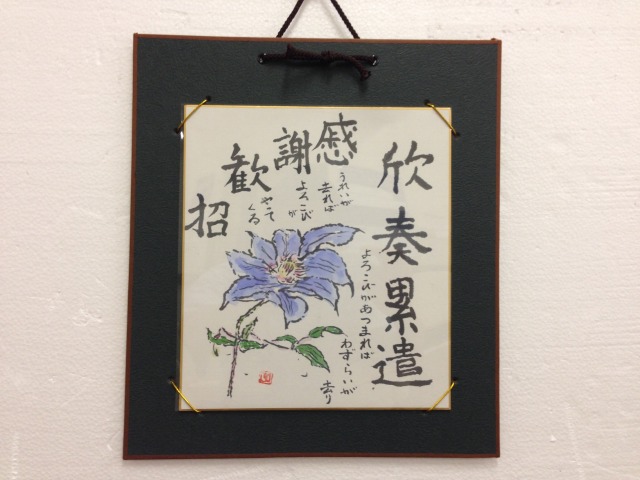 欣奏累遣
よろこびがあつまれば
わずらいが
去り
慼
謝
歡
招
うれいが
去れば
よろこび
が
やって
くる